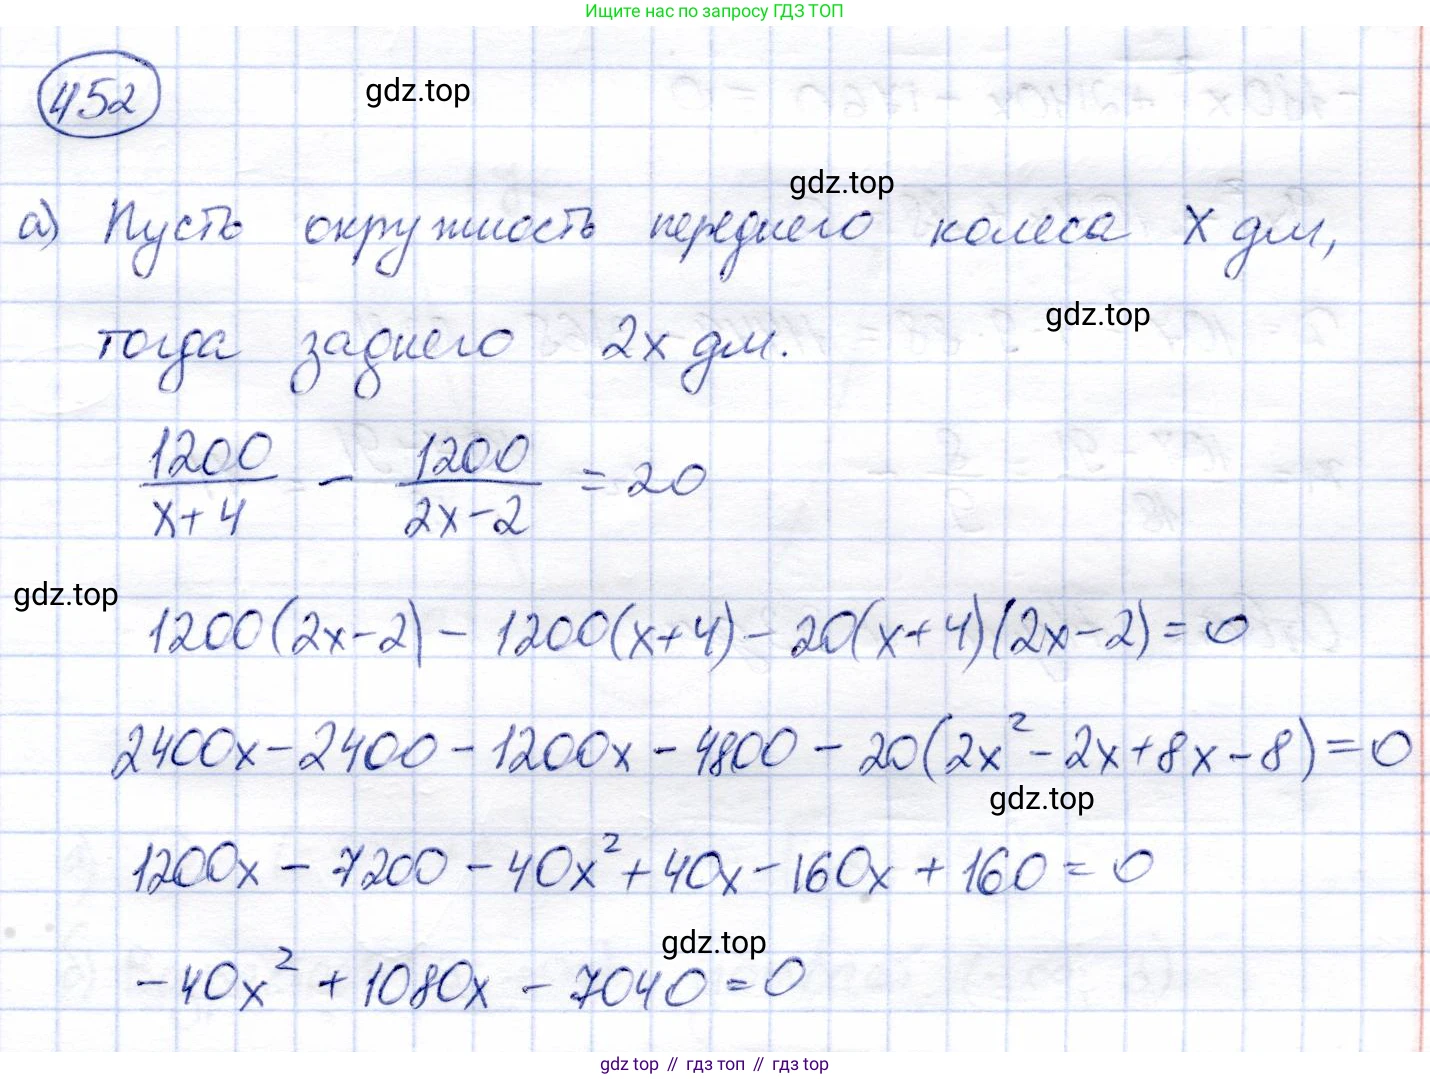 Ищите нас по запросу ГДЗ ТОП
452
gdz.top
gdz.top
а) Пусть окружность переднего колеса x дм,
gdz.top
тогда заднего 2x дм.
1200/(x+4) - 1200/(2x-2) = 20
gdz.top
1200(2x-2) - 1200(x+4) - 20(x+4)(2x-2) = 0
2400x - 2400 - 1200x - 4800 - 20(2x² - 2x + 8x - 8) = 0
gdz.top
1200x - 7200 - 40x² + 40x - 160x + 160 = 0
gdz.top
-40x² + 1080x - 7040 = 0
gdz top // гдз топ // гдз top